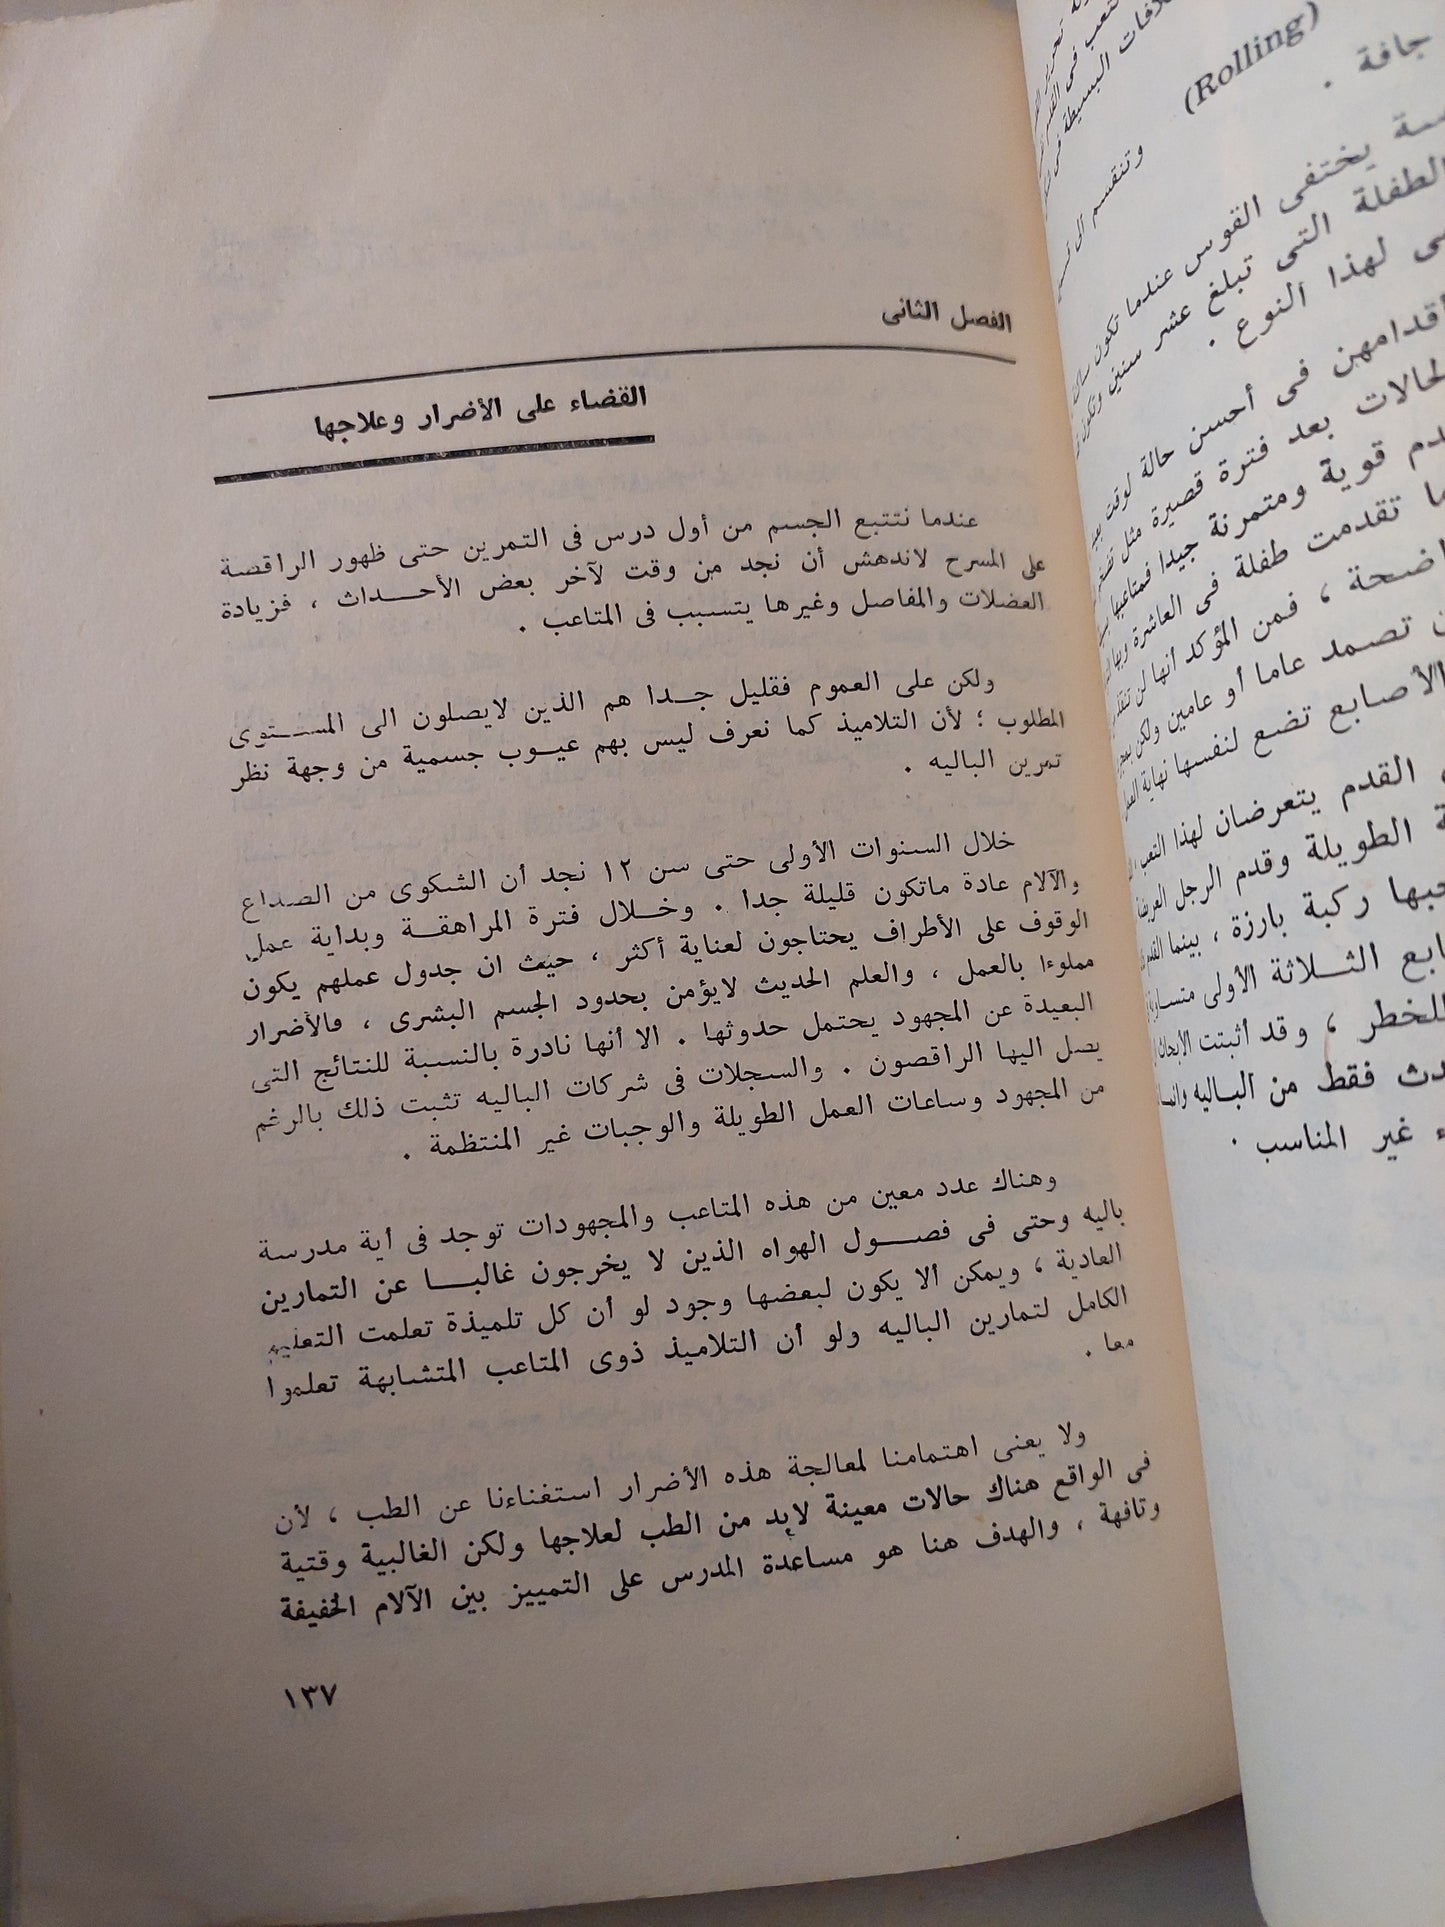 (Rolling)
جافة .
وتنقسم الى
يختفى القوس عندما تكون
الطفلة التى تبلغ عشر سنين وتكون
لهذا النوع .
أقدامهن فى أحسن حالة لوقت
لحالات بعد فترة قصيرة مثل
قوية ومتمرنة جيدا فمتاعبها
تقدمت طفلة فى العاشرة وبها
، فمن المؤكد أنها لن
تصمد عاما أو عامين ولكن
الأصابع تضع لنفسها نهاية
القدم يتعرضان لهذا التعب
الطويلة وقدم الرجل
ركبة بارزة ، بينما
الثـلاثة الأولى
للخطر ، وقد أثبتت الأبحاث
فقط من الباليه
غير المناسب .
الفصل الثانى
القضاء على الأضرار وعلاجها
عندما نتتبع الجسم من أول درس فى التمرين حتى ظهور الراقصة
على المسرح لاندهش أن نجد من وقت لآخر بعض الأحـــداث ، فزيادة
العضلات والمفاصل وغيرها يتسبب فى المتاعب .
ولكن على العموم فقليل جـدا هم الذين لايصلون الى المستـوى
المطلوب ؛ لأن التلاميذ كما نعرف ليس بهم عيـوب جسمية من وجهة نظر
تمرين الباليه .
خلال السنوات الأولى حتى سن ١٢ نجد أن الشكوى من الصداع
والآلام عادة ماتكون قليلة جدا . وخـلال فترة المراهقـة وبداية عمل
الوقوف على الأطراف يحتاجون لعناية أكثر ، حيث ان جدول عملهم يكون
مملوءا بالعمل ، والعلم الحديث لايؤمن بحدود الجسم البشرى ، فالأضرار
البعيدة عن المجهود يحتمل حدوثها . الا أنها نادرة بالنسبة للنتائج التى
يصل اليها الراقصون . والسجلات فى شركات الباليه تثبت ذلك بالرغم
من المجهود وساعات العمل الطويلة والوجبات غير المنتظمة .
وهناك عدد معين من هذه المتاعب والمجهودات توجد فى أية مدرسة
باليه وحتى فى فصـــول الهواه الذين لا يخرجون غالبـــا عن التمارين
العادية ، ويمكن ألا يكون لبعضها وجود لو أن كل تلميذة تعلمت التعليم
الكامل لتمارين الباليه ولو أن التلاميذ ذوى المتاعب المتشابهة تعلموا
معا .
ولا يعنى اهتمامنا لمعالجة هذه الأضرار استغناءنا عن الطب ، لأن
فى الواقع هناك حالات معينة لابد من الطب لعلاجها ولكن الغالبية وقتية
وتافهة ، والهدف هنا هو مساعدة المدرس على التمييز بين الآلام الخفيفة
١٣٧